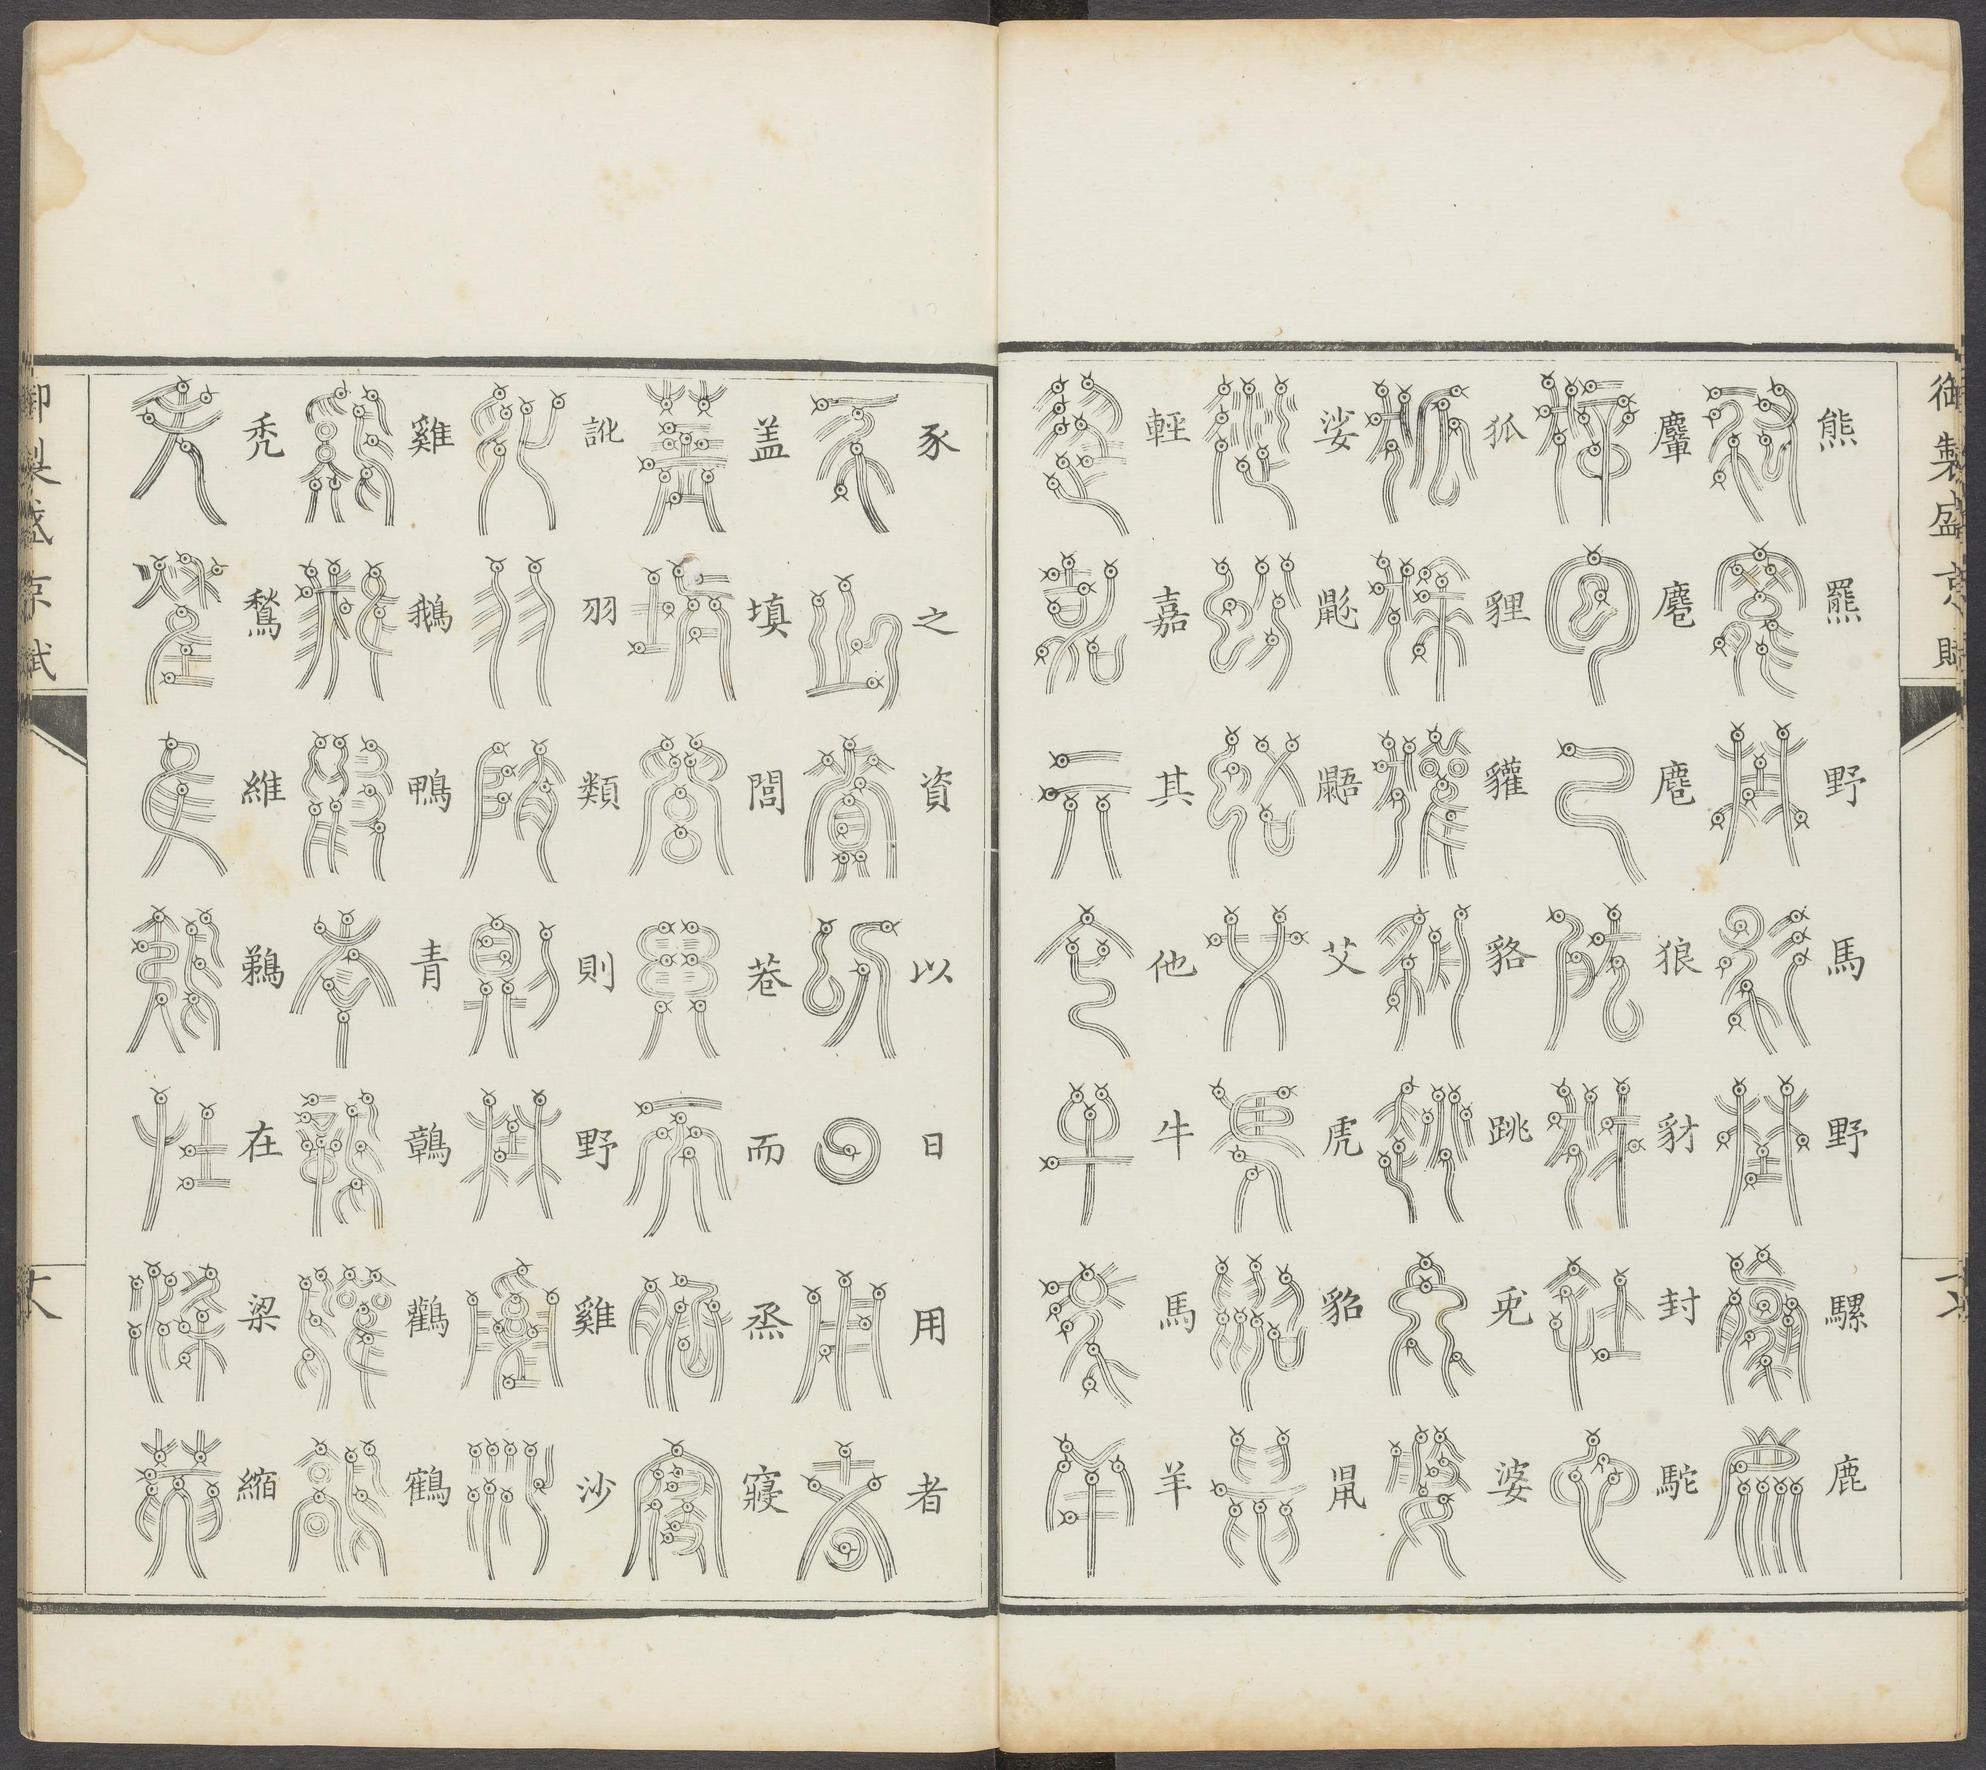 御製盛京賦
熊羆野馬野騾鹿
麞麅麂狼豺封駝
狐貍貛貉跳兎婆
娑鼢鼯艾虎貂鼠
輕嘉其他牛馬羊
豕之資以日用者
盖填閭巷而烝寢
訛羽類則野雞沙
雞鵝鴨青鶉鸛鶴
禿鶖維鵜在梁縮
御製盛京賦